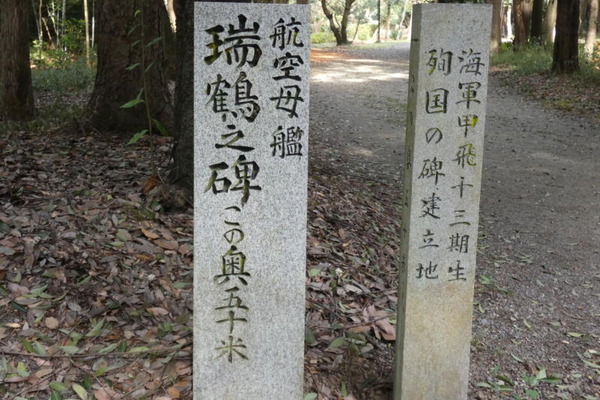 航空母艦
瑞鶴之碑 この奥五十米
海軍甲飛十三期生
殉国の碑建立地